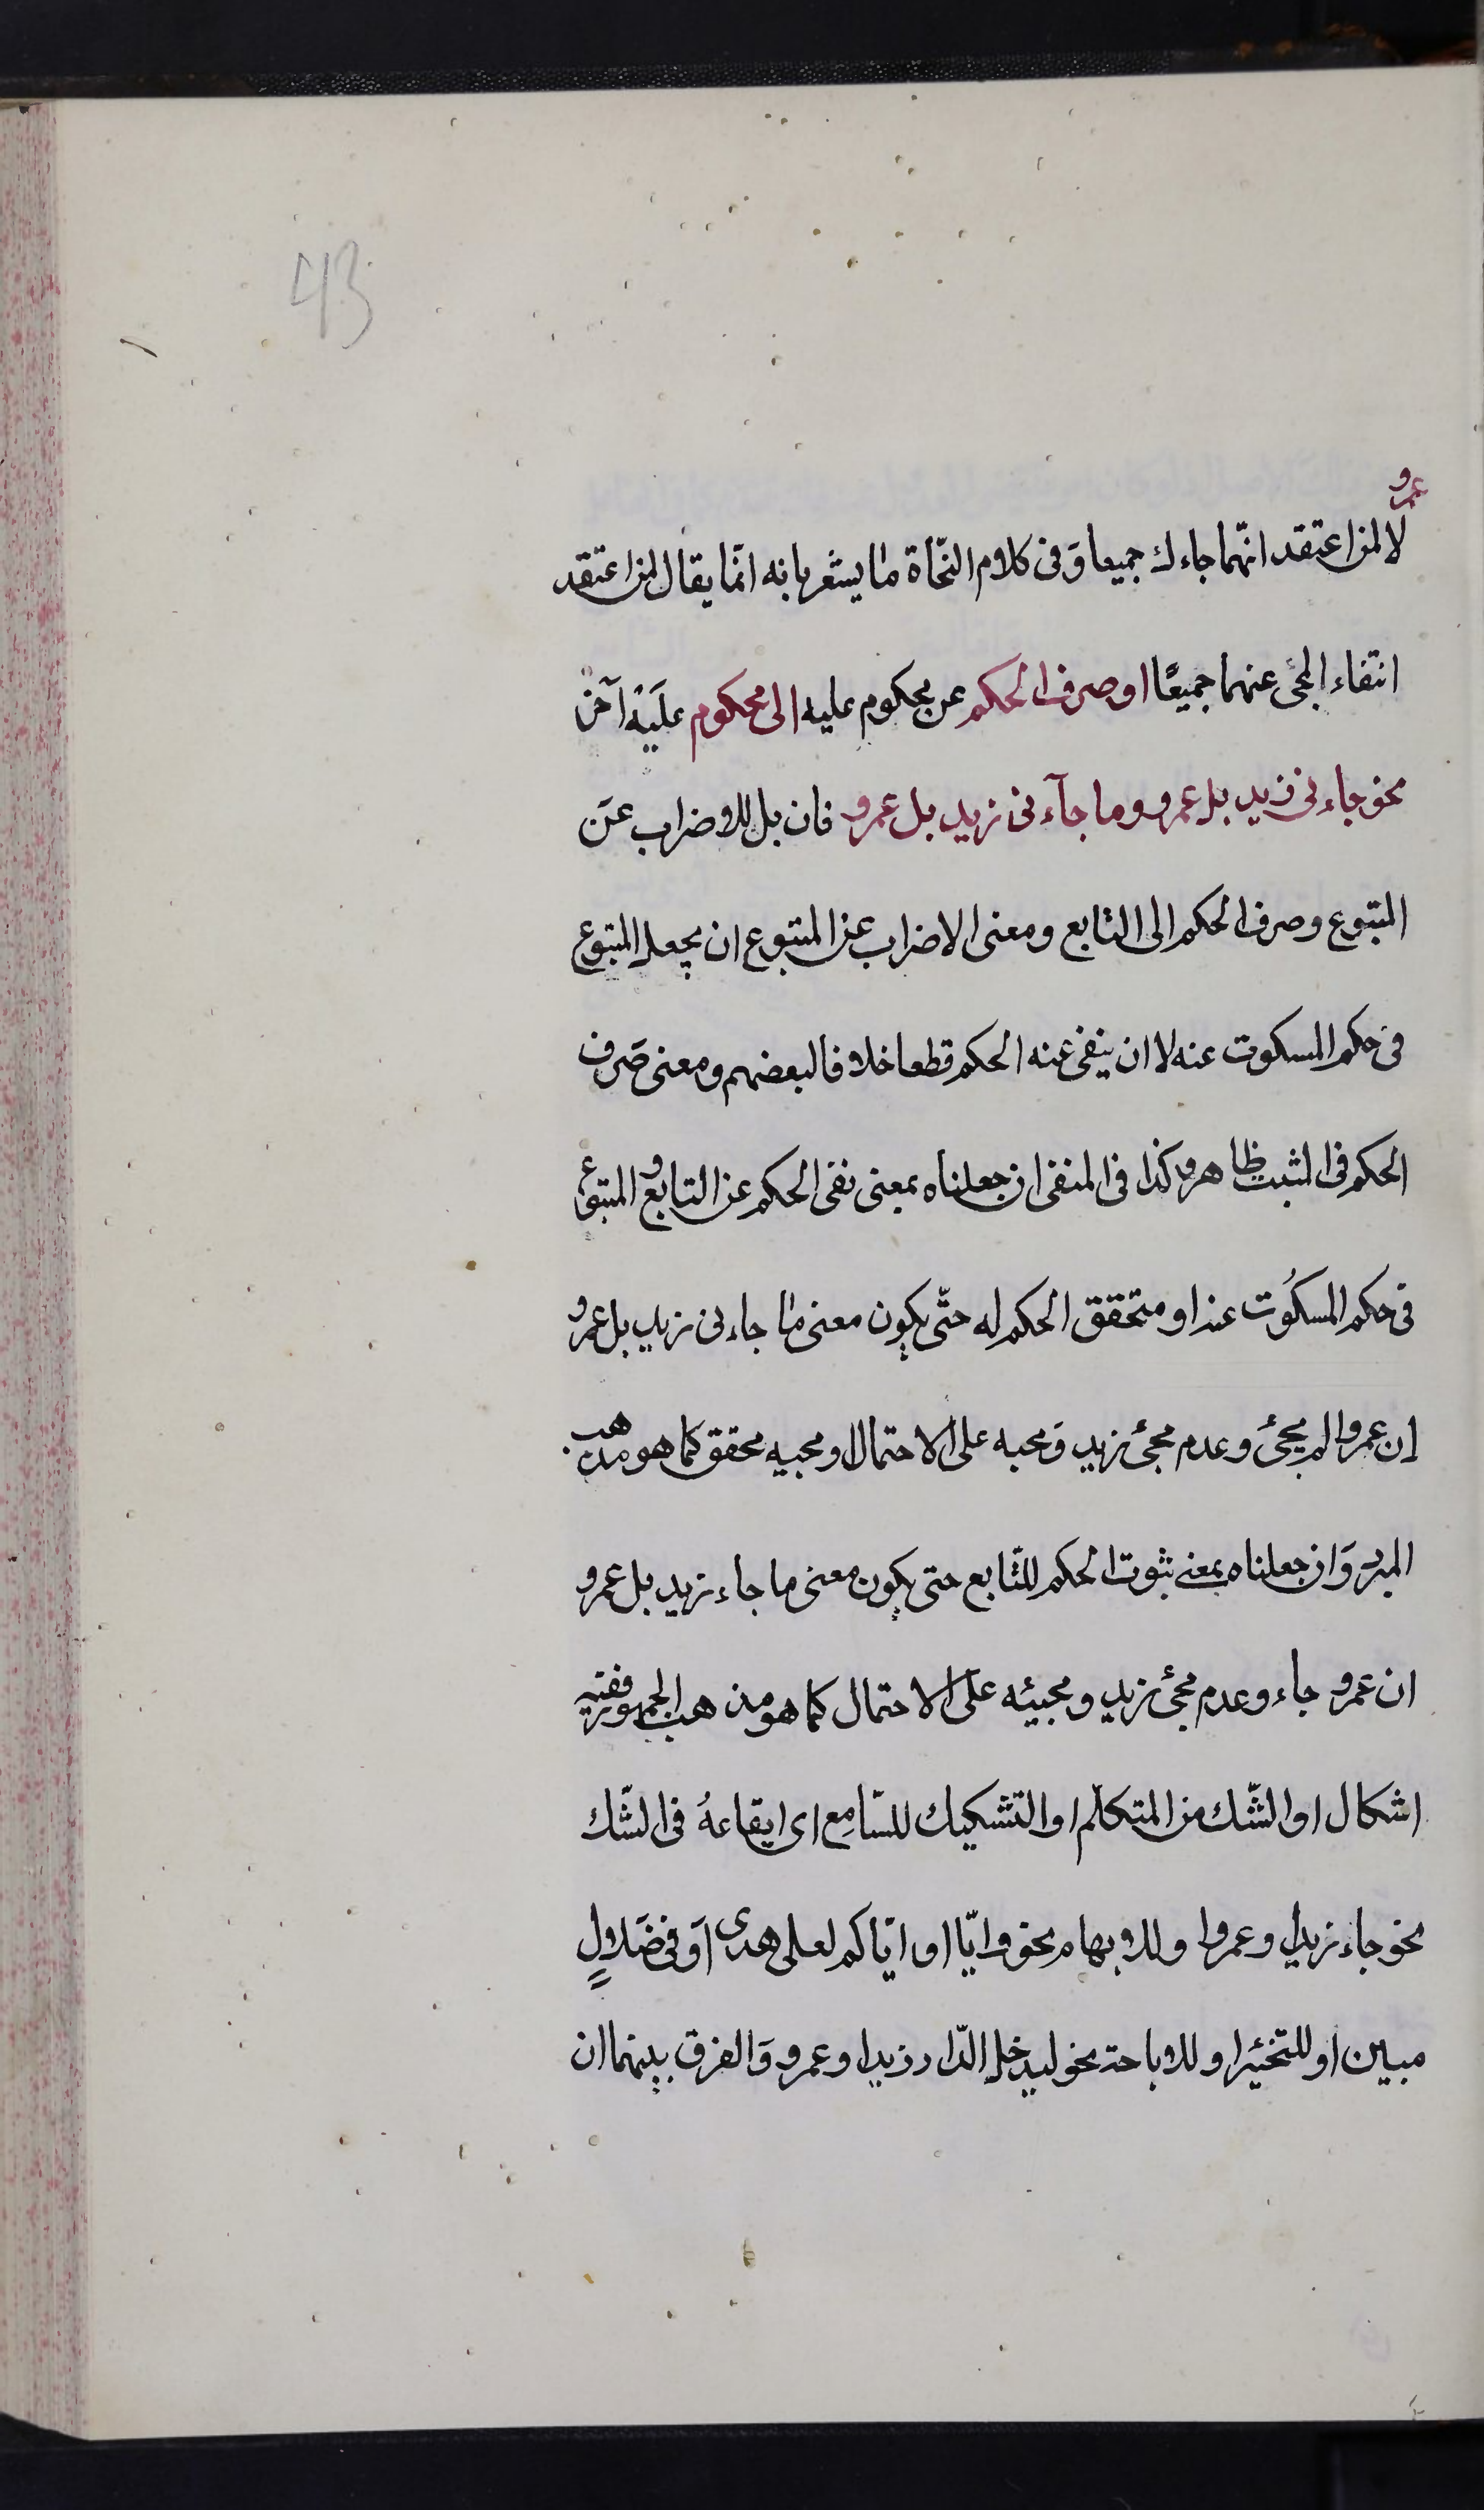 43
عمرو
لا لمن اعتقد انّهما جاءك جميعا وَفى كلام النحّاة ما يشعر بانه انّما يقال لمن اعتقد
انتفاء المجئ عنهما جميعًا او صرف الحكم عن محكوم عليه الى محكوم عليَه آخر
نحو جاءنى زيد بل عمرو وما جآءنى زيد بل عمرو فان بل للاضراب عنَ
المتبوع وصرف الحكم الى التابع ومعنى الاضراب عن المتبوع ان يجعل المتبوع
فى حكم المسكوت عنه لا ان ينفى عنه الحكم قطعا خلافا لبعضهم ومعنى صَرف
الحكم فى المثبت ظاهر وكذا فى المنفى ان جعلناه بمعنى نفى الحكم عن التابع والمتبوع
فى حكم المسكُوت عنه او متحقق الحكم له حتّى يكون معنى ما جاءنى زيد بل عمرو
ان عمروا لم يجئ وعدم مجئ زيد وَمجيه على الاحتمال او مجييه محقق كما هو مذهب
المبرد وَان جعلناه بمعنى ثبوت الحكم للتّابع حتى يكون معنى ما جاء زيد بل عمرو
ان عمرو جاء وعدم مجئ زيد ومجيئه على الاحتمال كما هو مذهب الجمهور ففيه
اشكال او الشّك من المتكلّم او التّشكيك للسّامِع اى ايقاعهُ فى الشّك
نحو جاء زيدا وعمروا وللابهام نحو وانّا او ايّاكم لعلى هدى اَو فى ضَلالٍ
مبين او للتخئير او للاباحة نحو ليدخل الدّار زيدا وعمرو وَالفرق بينهما ان